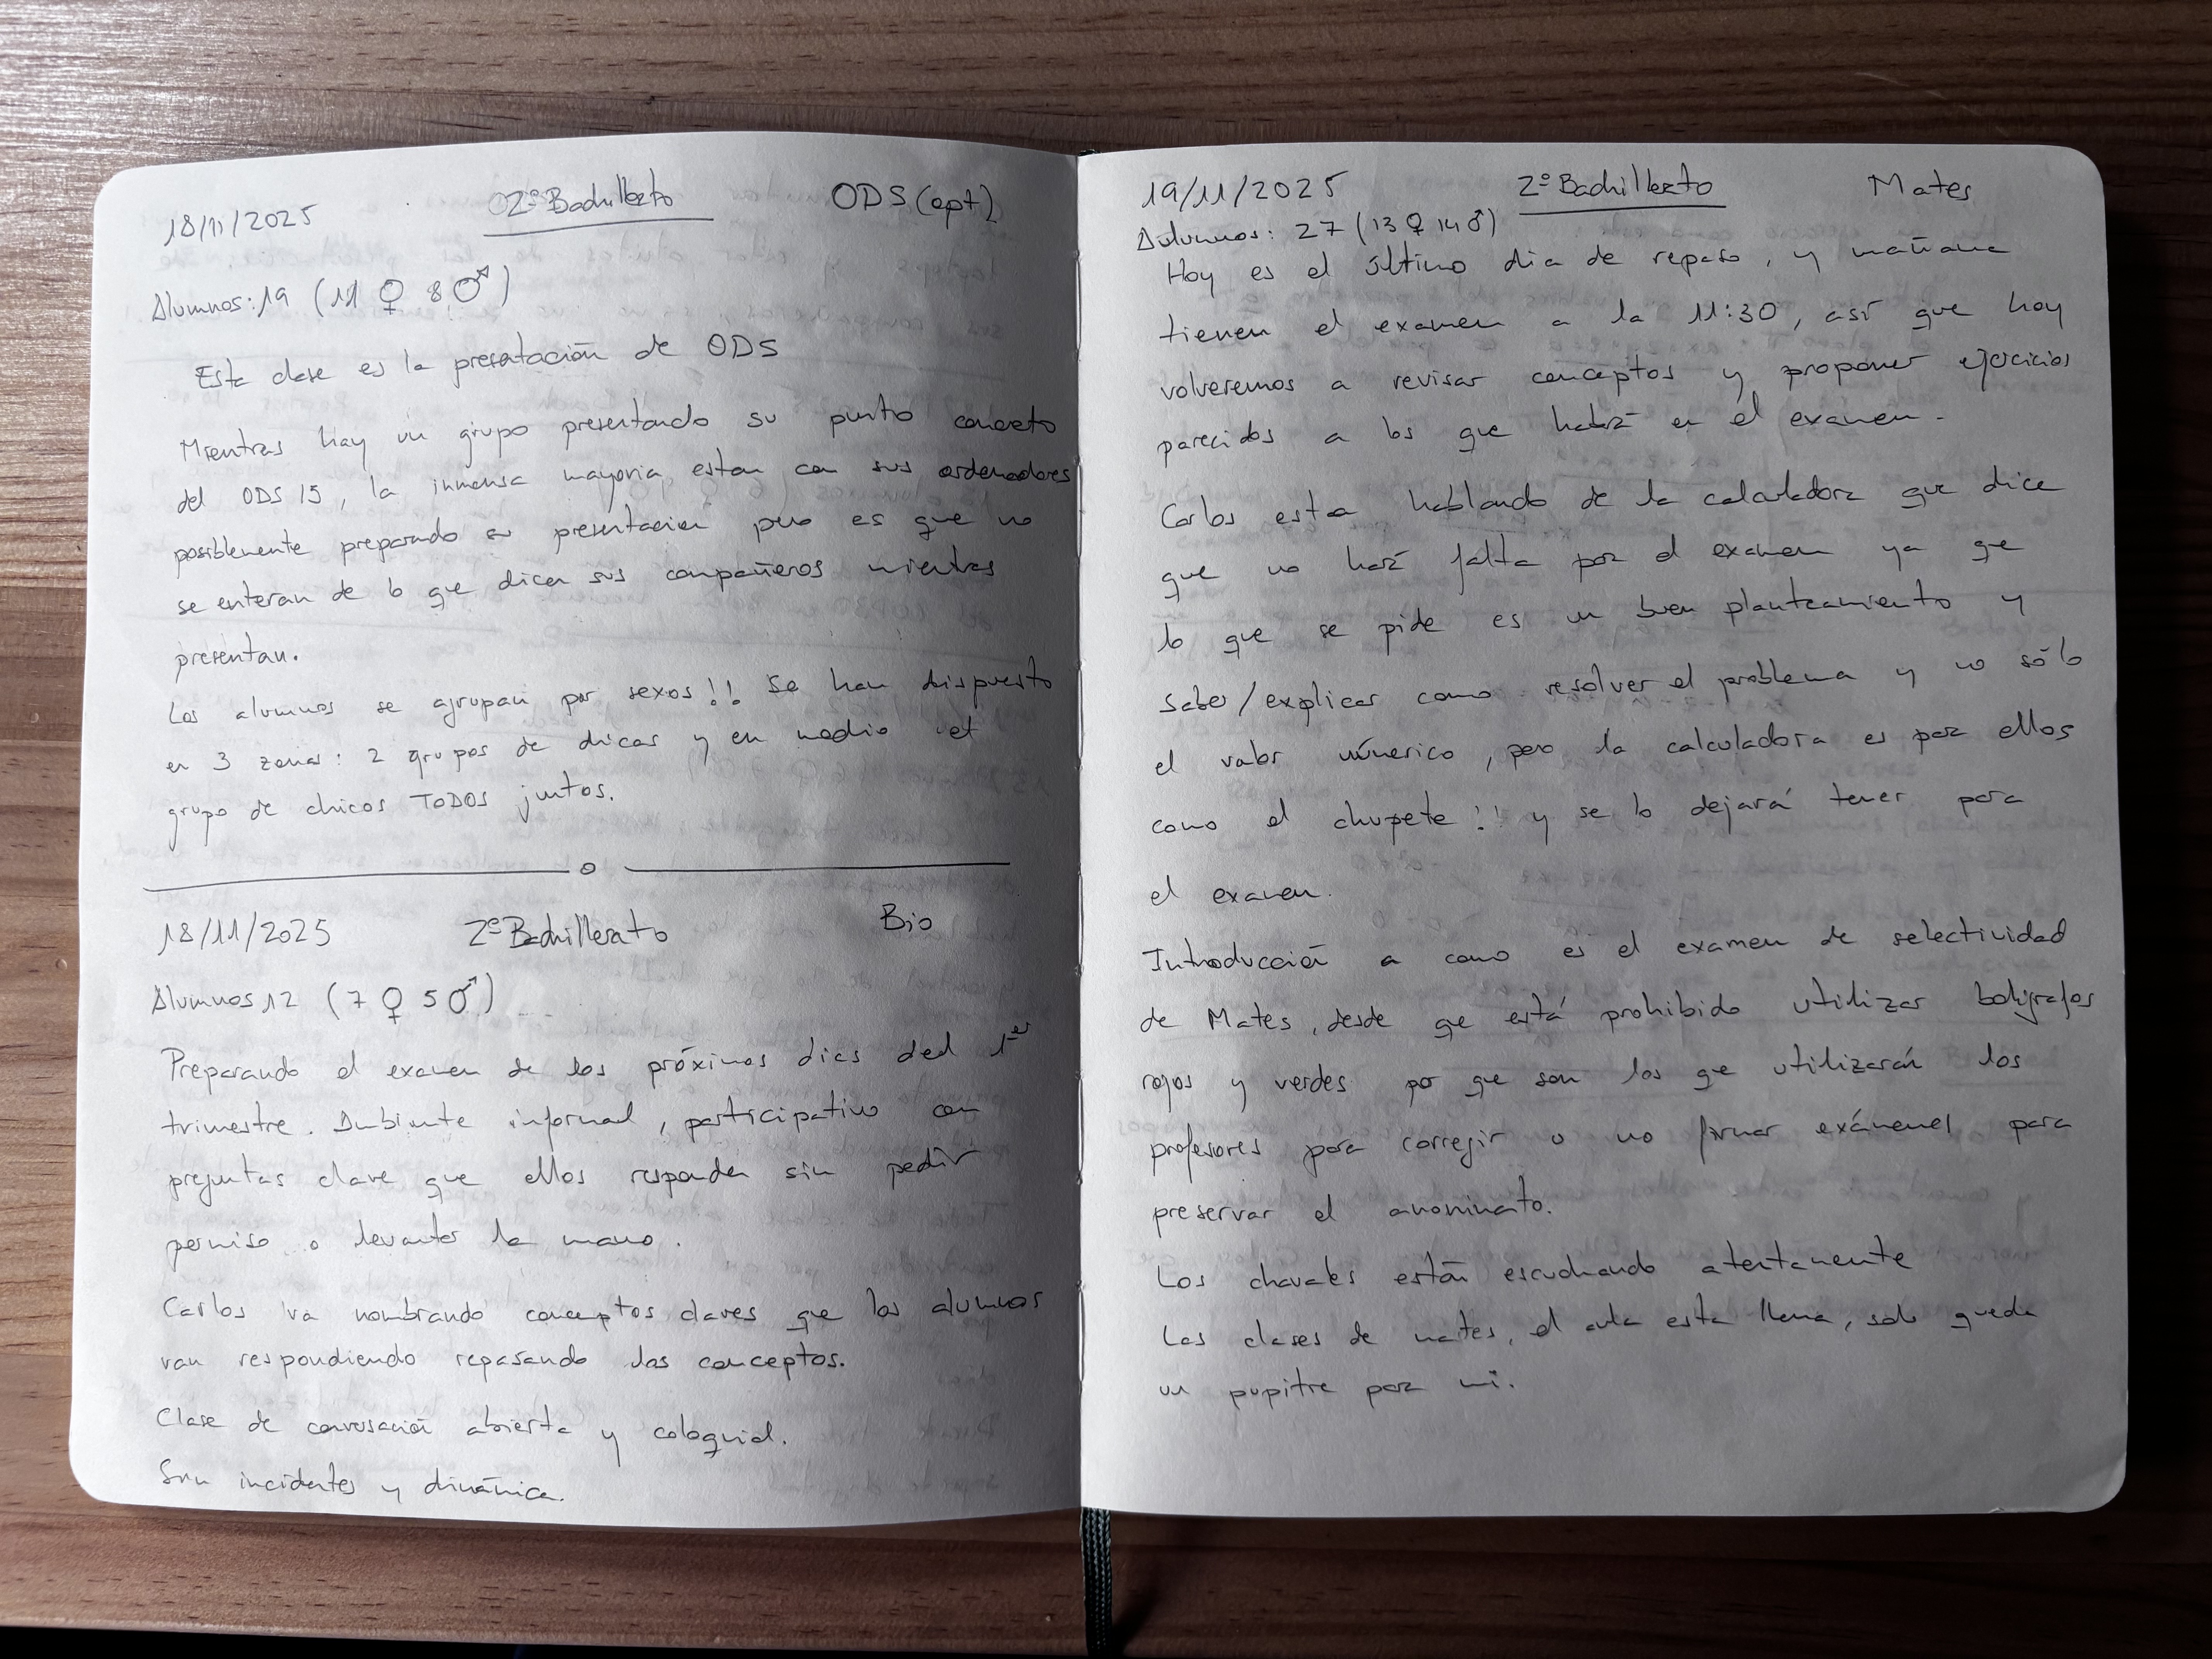 18/11/2025 2º Bachillerto ODS (opt)
Alumnos: 19 (11 ♀ 8 ♂)
Esta clase es la presentación de ODS
Mientras hay un grupo presentando su punto concreto
del ODS 15, la inmensa mayoria estan con sus ordenadores
posiblemente preparando su presentacion pero es que no
se enteran de lo que dicen sus compañeros mientras
presentan.
Los alumnos se agrupan por sexos!! Se han dispuesto
en 3 zonas: 2 grupos de chicas y en medio el
grupo de chicos TODOS juntos.
18/11/2025 2º Bachillerato Bio
Alumnos 12 (7 ♀ 5 ♂)
Preparando el examen de los próximos dias del 1er
trimestre. Ambiente informal, participativo con
preguntas clave que ellos responden sin pedir
permiso o levantar la mano.
Carlos va nombrando conceptos claves que los alumnos
van respondiendo repasando los conceptos.
Clase de conversación abierta y coloquial.
incidentes y dinámica.
19/11/2025 2º Bachillerto Mates
Alumnos: 27 (13 ♀ 14 ♂)
Hoy es el último dia de repaso, y mañana
tienen el examen a la 11:30, asi que hoy
volveremos a revisar conceptos y proponer ejercicios
parecidos a los que habrá en el examen.
Carlos esta hablando de la calculadora que dice
que no hará falta para el examen ya que
lo que se pide es un buen planteamiento y
saber/explicar como resolver el problema y no sólo
el valor númerico, pero la calculadora es para ellos
como el chupete!! y se lo dejará tener para
el examen.
Introducción a como es el examen de selectividad
de Mates, desde que está prohibido utilizar boligrafos
rojos y verdes por que son los que utilizarán los
profesores para corregir o no firmar exámenes para
preservar el anominato.
Los chavales están escuchando atentamente
Las clases de mates, el aula esta llena, solo queda
un pupitre para mi.